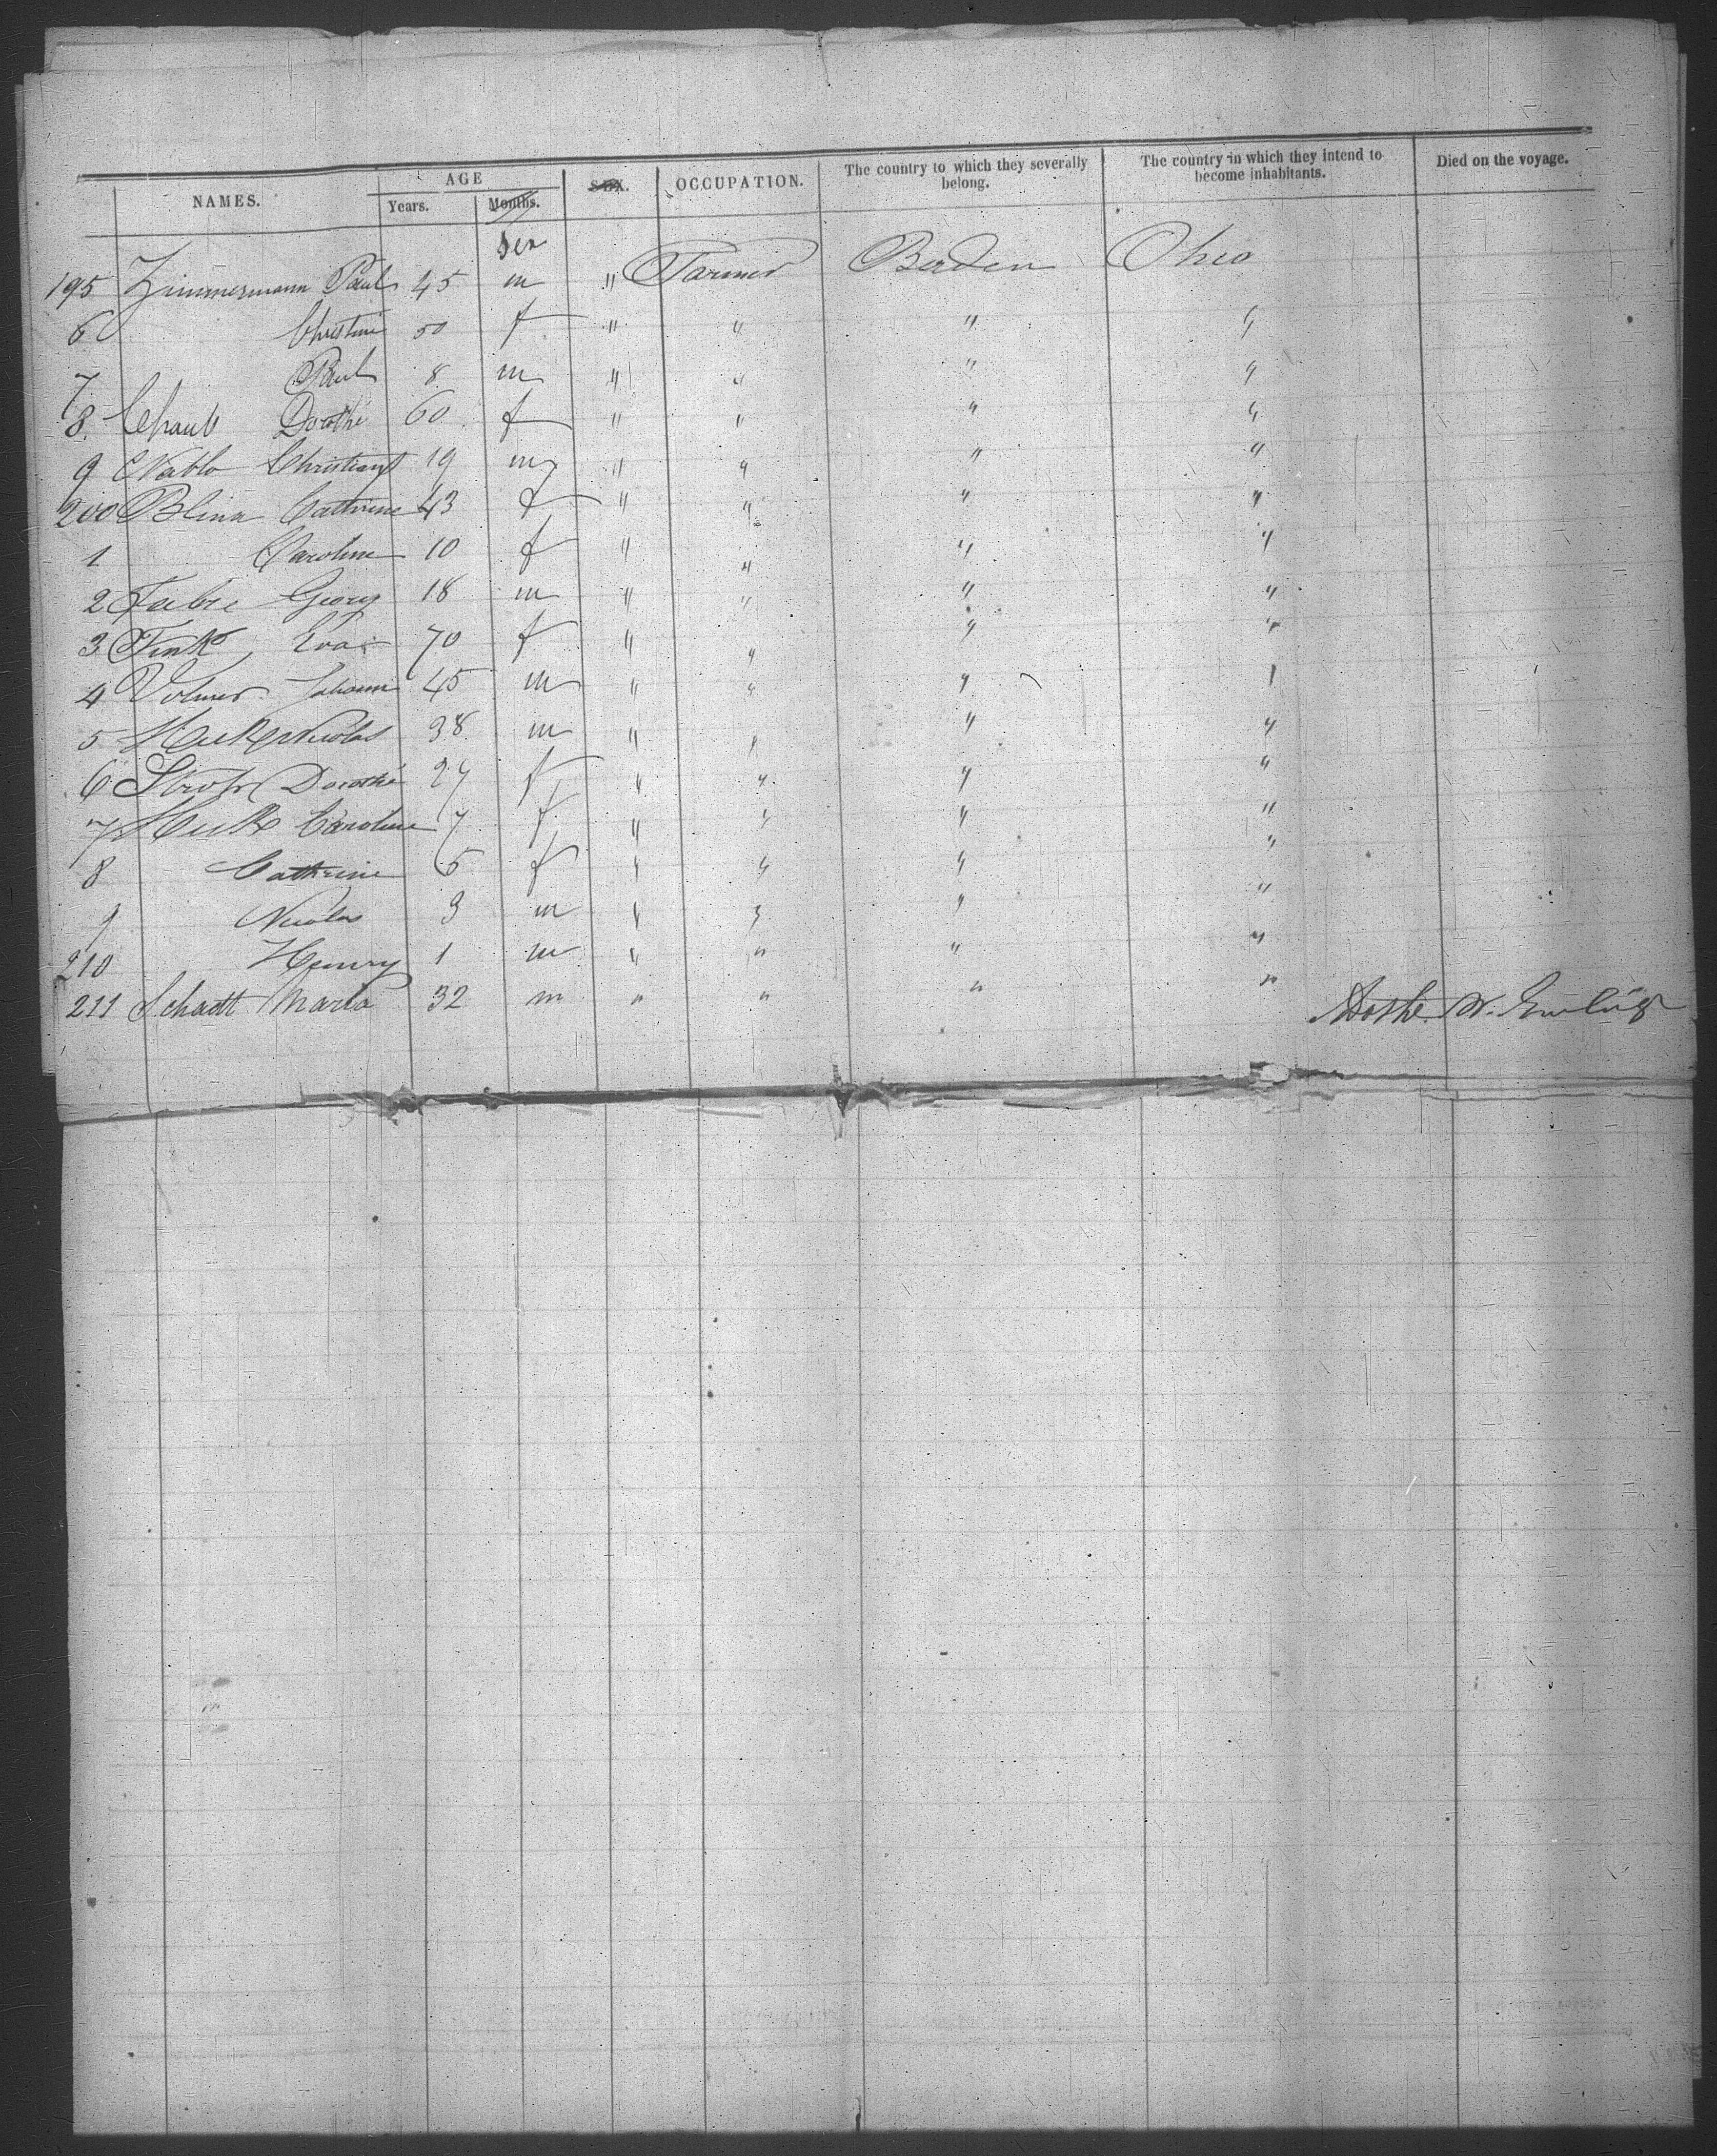 NAMES. AGE Years. Months. SEX. OCCUPATION. The country to which they severally belong. The country in which they intend to become inhabitants. Died on the voyage.
Sex
195 Zimmermann Paul 45 m " Farmer Baden Ohio
6 Christine 50 f " " " "
7 Paul 8 m " " " "
8 Dorothé 60 f " " " "
9 Christian 19 m " " " "
200 Cathrine 43 f " " " "
1 Caroline 10 f " " " "
2 Georg 18 m " " " "
3 Fink Eva 70 f " " " "
4 Volmer Johann 45 m " " " "
5 Huck Nicolas 38 m " " " "
6 Dorothé 27 f " " " "
7 Huck Caroline 7 f " " " "
8 Cathrine 5 f " " " "
9 Nicolas 3 m " " " "
210 Henry 1 m " " " "
211 Schadt Maria 32 m " " " "